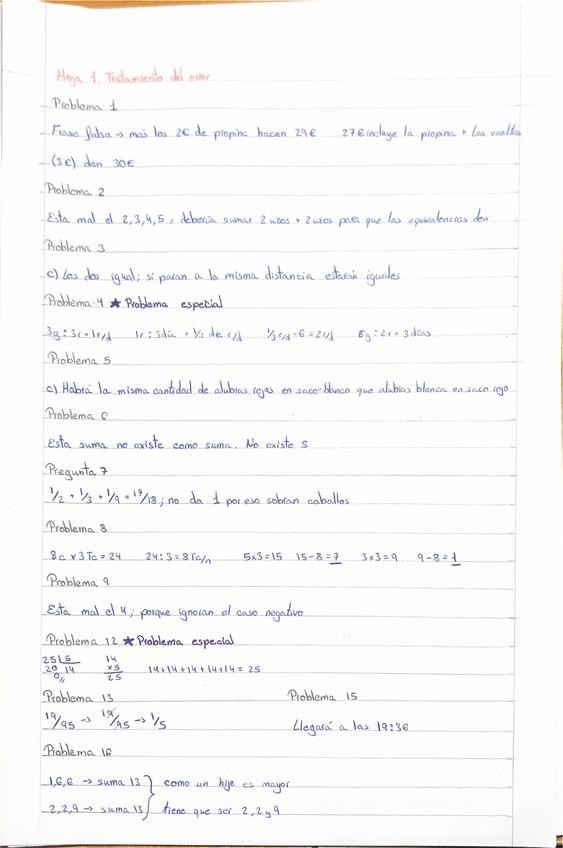 Hoja 1. Tratamiento del error
Problema 1
Frase falsa → más los 2€ de propina hacen 29€ 27€ incluye la propina + las vueltas
(3€) dan 30€
Problema 2
Esta mal el 2,3,4,5, debería sumar 2uzos + 2uzos para que las equivalencias den
Problema 3
c) Los dos igual; si paran a la misma distancia estarán iguales
Problema 4 ★ Problema especial
3g:3r=1r/d 1r:3día = 1/3 de r/d 1/3r/d·6=2r/d 6g:2r=3días
Problema 5
c) Habrá la misma cantidad de alubias rojas en saco blanco que alubias blanca en saco rojo
Problema 6
Esta suma no existe como suma. No existe S
Pregunta 7
1/2 + 1/3 + 1/9 = 17/18; no da 1 por eso sobran caballos
Problema 8
8c x 3Tc = 24 24:3=8Tc/n 5x3=15 15-8=7 3x3=9 9-8=1
Problema 9
Esta mal el 4; porque ignoran el caso negativo
Problema 12 ★ Problema especial
25 5 14
20 14 x5 14+14+14+14+14=25
0,, 25
Problema 13 Problema 15
19/95 → 19/95 → 1/5 Llegará a las 19:36
Problema 16
1,6,6 → suma 13 } como un hijo es mayor
2,2,9 → suma 13 } tiene que ser 2,2 y 9